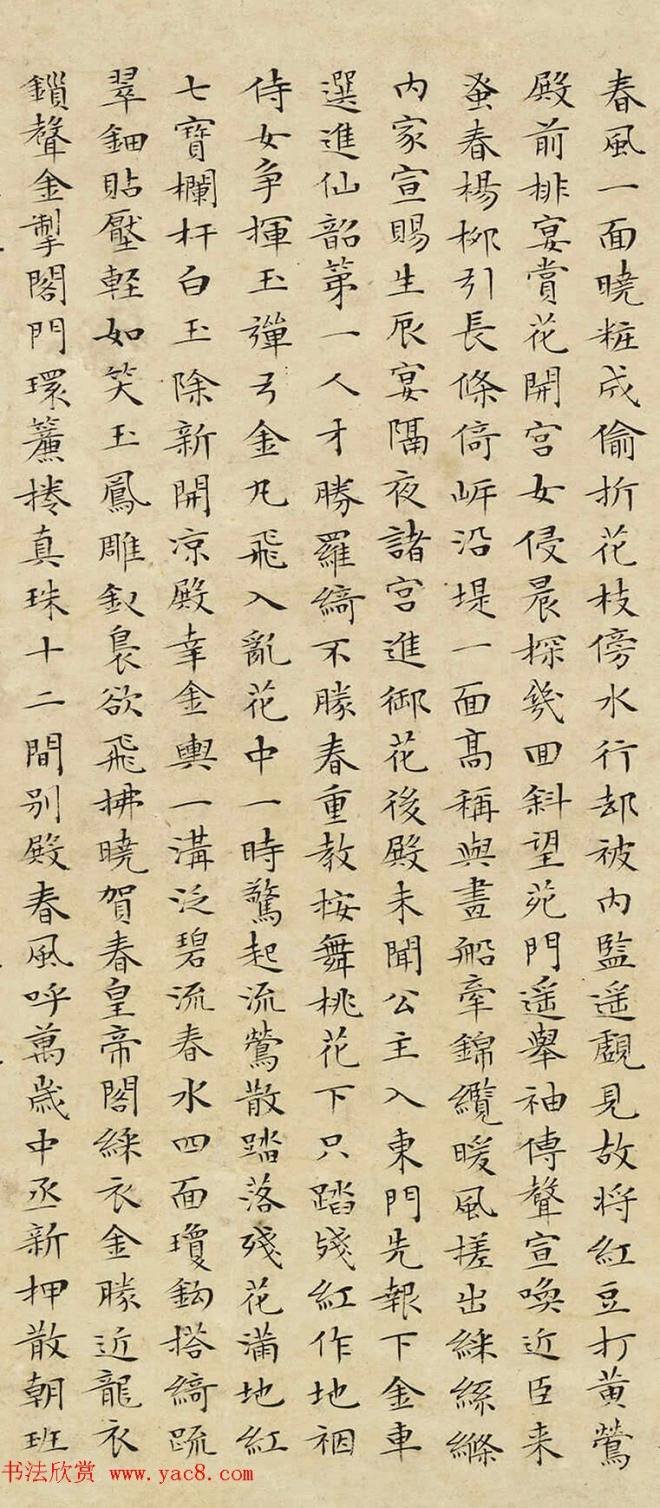 春風一面曉粧成偷折花枝傍水行却被内監遥覰見故将紅豆打黄鶯
殿前排宴賞花開宫女侵晨探幾回斜望苑門遥舉袖傳聲宣唤近臣来
蚤春楊柳引長條倚岍沿堤一面髙稱與畫船牽錦纜暖風搓出綵絲絛
内家宣賜生辰宴隔夜諸宫進御花後殿未聞公主入東門先報下金車
選進仙韶第一人才勝羅綺不勝春重教按舞桃花下只踏殘紅作地裀
侍女争揮玉彈弓金丸飛入亂花中一時驚起流鶯散踏落殘花滿地紅
七寶欄杆白玉除新開凉殿幸金輿一溝泛碧流春水四面瓊鈎搭綺䟽
翠鈿貼靨輕如笑玉鳳雕釵裊欲飛拂曉賀春皇帝閣綵衣金勝近龍衣
鎖聲金掣閤門環簾捲真珠十二間别殿春風呼萬歲中丞新押散朝班
书法欣赏 www.yac8.com